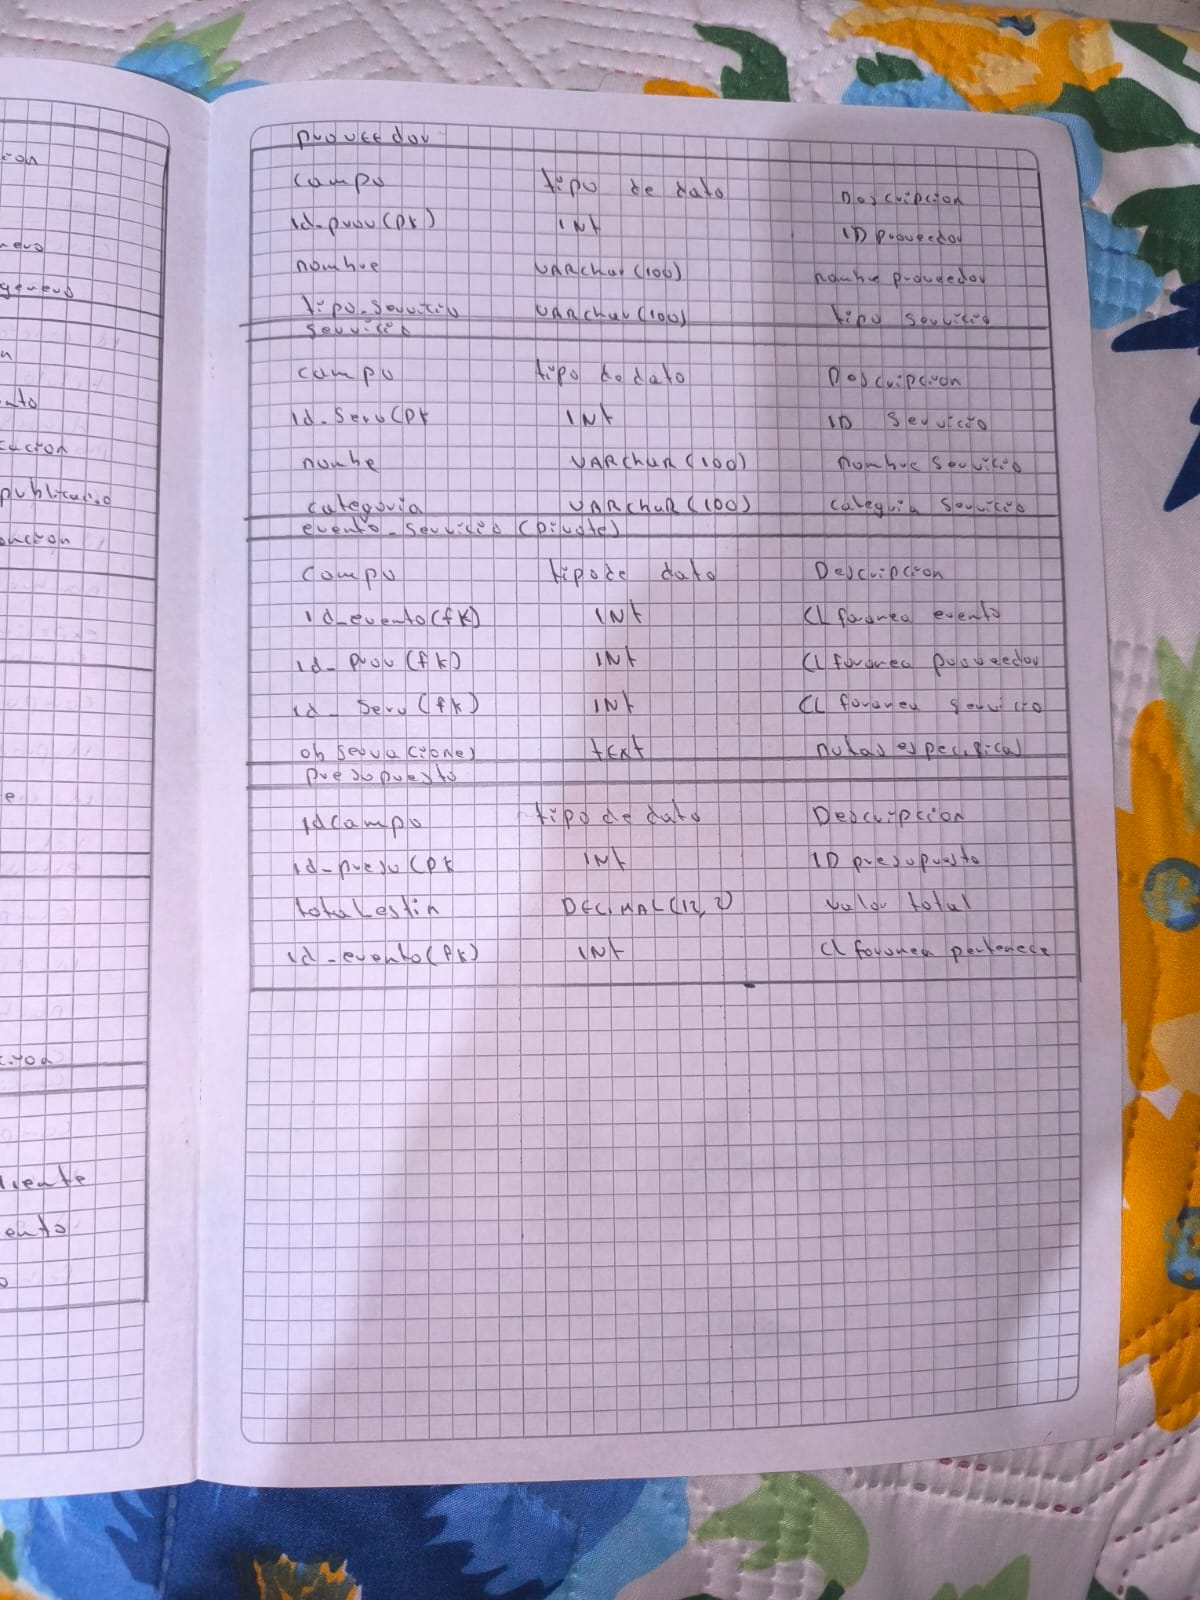 ion
nero
genero
n
ento
publicacio
e
liente
ento
o
proveedor
campo tipo de dato Descripcion
id-prov(pk) INt ID proveedor
nombre VARchar(100) nombre proveedor
tipo-servicio VARchar(100) tipo servicio
servicio
campo tipo de dato Descripcion
id-Serv(pk INt ID Servicio
nombe VARchaR(100) nombre servicio
categoria VARchaR(100) categria servicio
evento-servicio (pivote)
campo tipo de dato Descripcion
id-evento(fk) INt Cl foranea evento
id-prov(fk) INt Cl foranea proveedor
id-Serv(fk) INt Cl foranea servicio
observaciones tExt notas especificas
presopuesto
idcampo tipo de dato Descripcion
id-presu(pk INt ID presupuesto
totalestin DECiMAL(12,2) valor total
id-evento(fk) INt Cl foranea pertenece